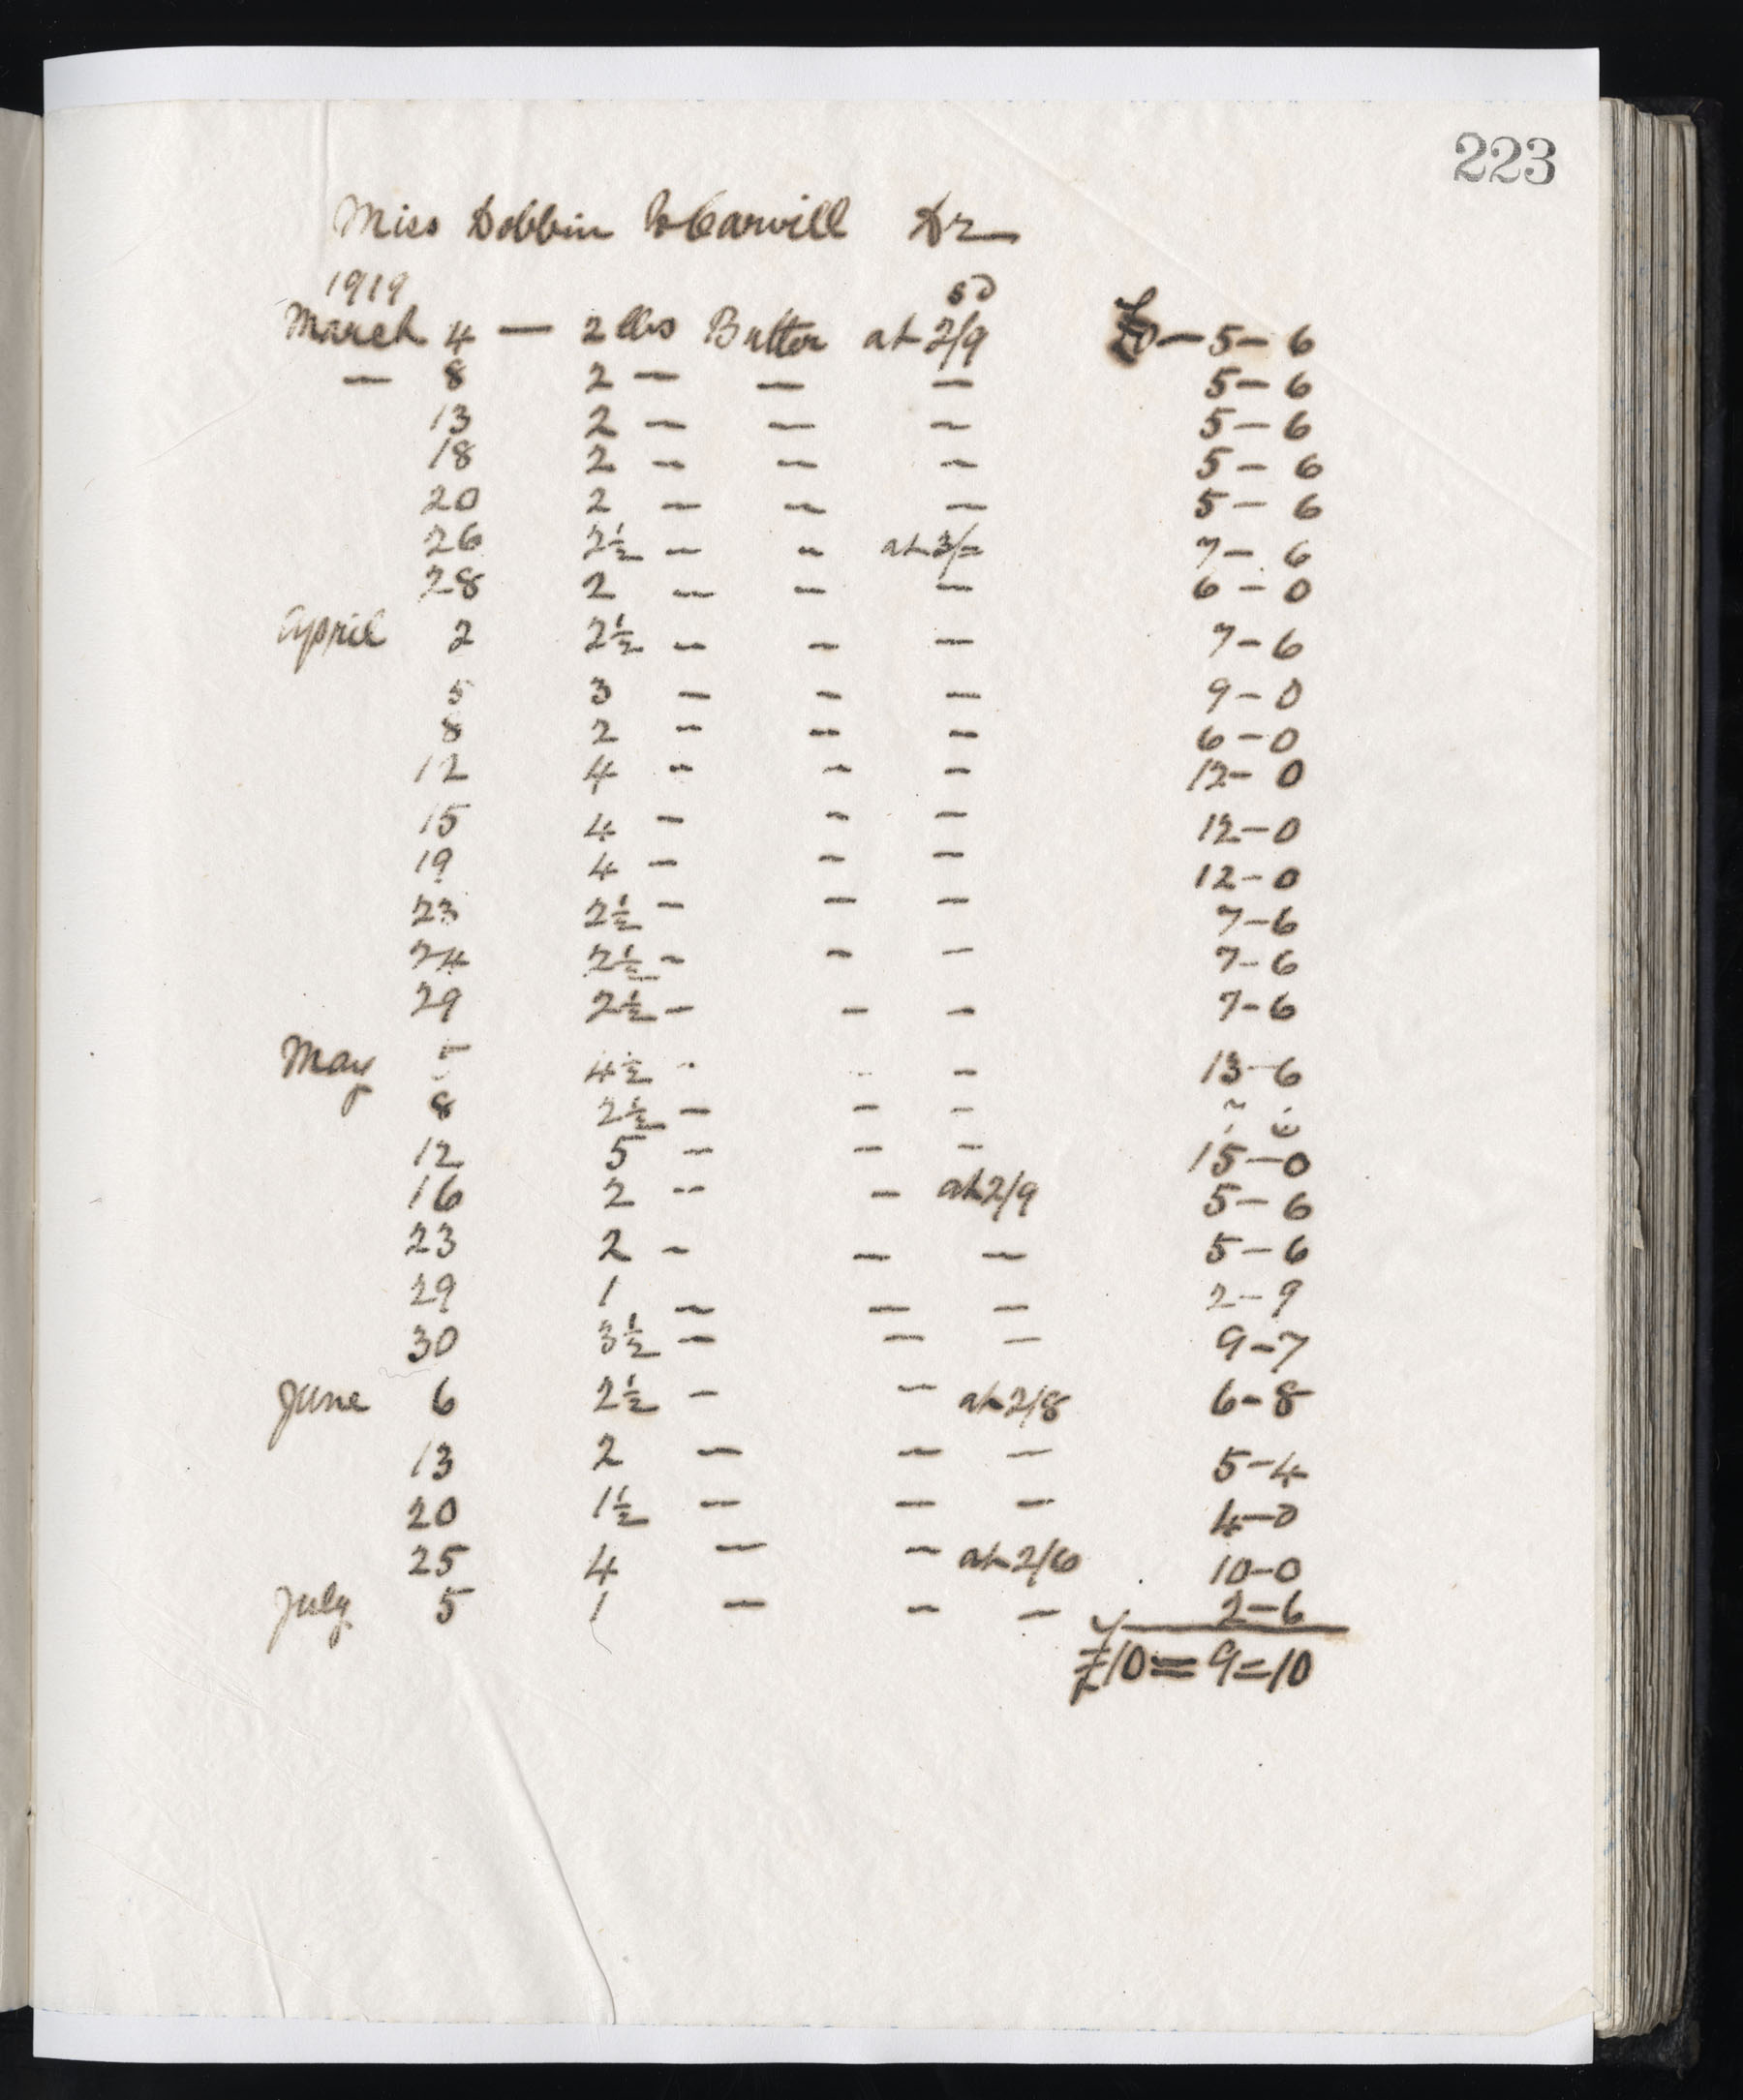 223
Miss Dobbin to Carvill Dr
1919
s d
March 4 — 2 lbs Butter at 2/9 £0 — 5 — 6
— 8 2 — — — 5 — 6
13 2 — — — 5 — 6
18 2 — — — 5 — 6
20 2 — — — 5 — 6
26 2½ — — at 3/= 7 — 6
28 2 — — — 6 — 0
April 2 2½ — — — 7 — 6
5 3 — — — 9 — 0
8 2 — — — 6 — 0
12 4 — — — 12 — 0
15 4 — — — 12 — 0
19 4 — — — 12 — 0
23 2½ — — — 7 — 6
24 2½ — — — 7 — 6
29 2½ — — — 7 — 6
May 5 4½ — — — 13 — 6
8 2½ — — —
12 5 — — — 15 — 0
16 2 — — at 2/9 5 — 6
23 2 — — — 5 — 6
29 1 — — — 2 — 9
30 3½ — — — 9 — 7
June 6 2½ — — at 2/8 6 — 8
13 2 — — — 5 — 4
20 1½ — — — 4 — 0
25 4 — — at 2/6 10 — 0
July 5 1 — — — 2 — 6
£10 = 9 = 10